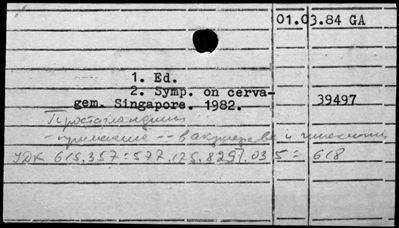 01.03.84 GA
1. Ed.
2. Symp. on cerva-
gem. Singapore. 1982.
39497
Простагландины
- применение -- в акушерстве и гинекологии
УДК 615.357:577.175.8297.03 5 = 618